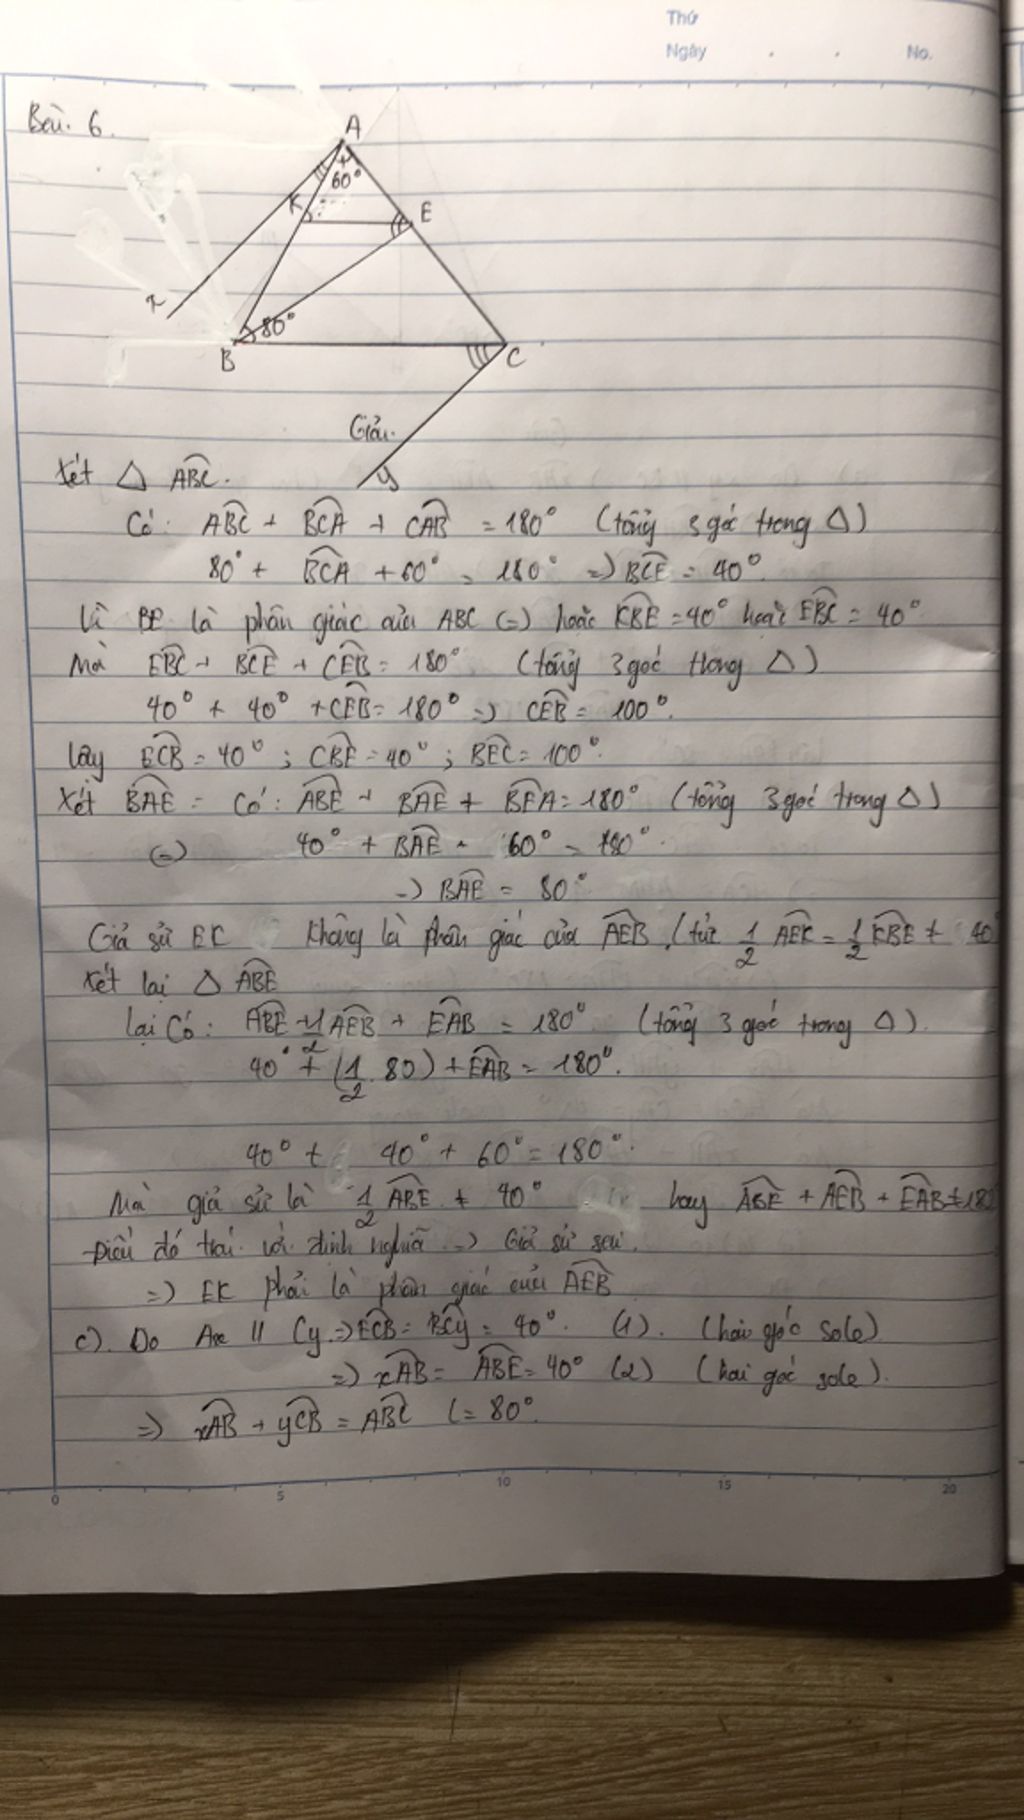 Thứ
Ngày . . No.
Bài 6.
A
60°
K
E
x
80°
B
C
y
Giải
Xét △ ABC.
Có: ABC + BCA + CAB = 180° (tổng 3 góc trong △)
80° + BCA + 60° = 180° => BCE = 40°
Vì BE là phân giác của ABC (=) hoặc KBE = 40° hoặc EBC = 40°
Mà EBC + BCE + CEB = 180° (tổng 3 góc trong △)
40° + 40° + CEB = 180° => CEB = 100°.
Vậy ECB = 40° ; CBE = 40° ; BEC = 100°.
Xét BAE = Có: ABE + BAE + BEA = 180° (tổng 3 góc trong △)
(=) 40° + BAE - 60° = 180°
=> BAE = 80°
Giả sử EK không là phân giác của AEB (tức 1/2 AEK = 1/2 KBE ≠ 40
Xét lại △ ABE
lại Có: ABE + 1/2 AEB + EAB = 180° (tổng 3 góc trong △).
40° + (1/2 . 80) + EAB = 180°.
40° + 40° + 60° = 180°.
Mà giả sử là 1/2 ABE ≠ 40° hay ABE + AEB + EAB ≠ 180
Điều đó trái với định nghĩa => Giả sử sai.
=> EK phải là phân giác của AEB
c). Do Ax // Cy => ECB = BCy = 40°. (1). (hai góc sole)
=> xAB = ABE = 40° (2) (hai góc sole).
=> xAB + yCB = ABC (= 80°.
0 5 10 15 20